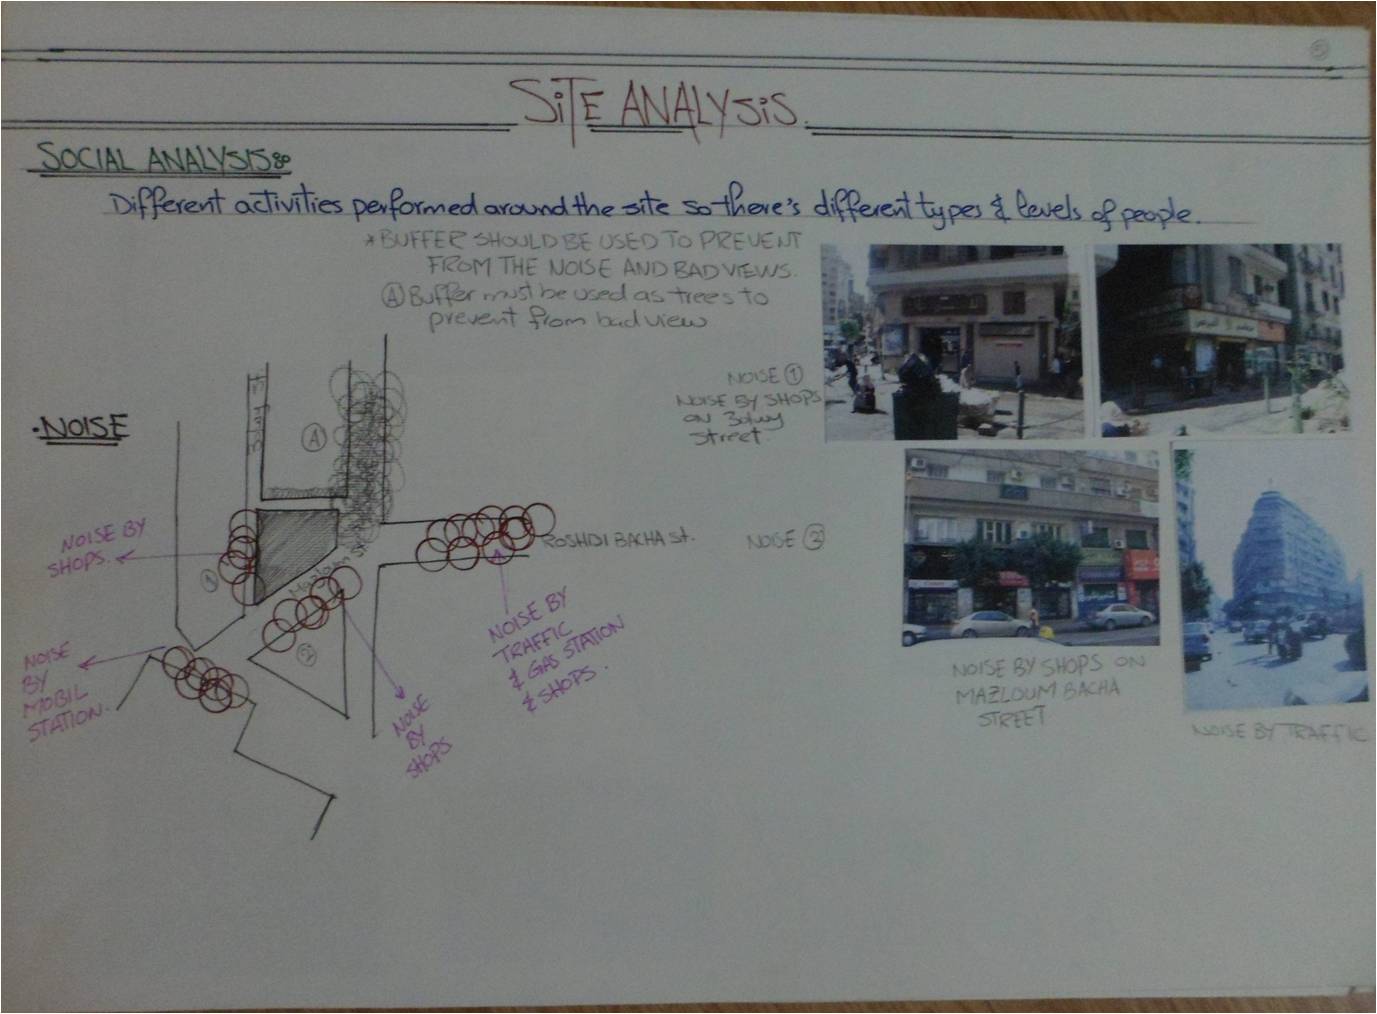 5
SiTE ANALYSiS.
SOCIAL ANALYSIS:
Different activities performed around the site so there's different types & levels of people.
*BUFFER SHOULD BE USED TO PREVENT
FROM THE NOISE AND BAD VIEWS.
Ⓐ Buffer must be used as trees to
prevent from bad view
NOISE ①
NOISE BY SHOPS
ON 3dwy
Street
.NOISE
Ⓐ
NOISE BY
SHOPS.
①
Mazloum
ROSHDI BACHA St.
NOISE ②
②
NOISE BY
TRAFFIC
& GAS STATION
& SHOPS.
NOISE
BY
MOBIL
STATION.
NOISE
BY
SHOPS
NOISE BY SHOPS ON
MAZLOUM BACHA
STREET
NOISE BY TRAFFIC